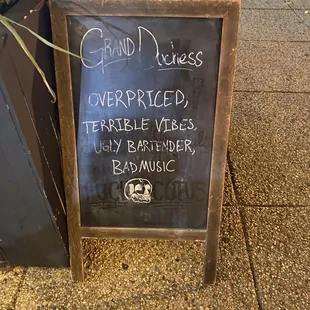 Grand Duchess
OVERPRICED,
TERRIBLE VIBES,
UGLY BARTENDER,
BAD MUSIC